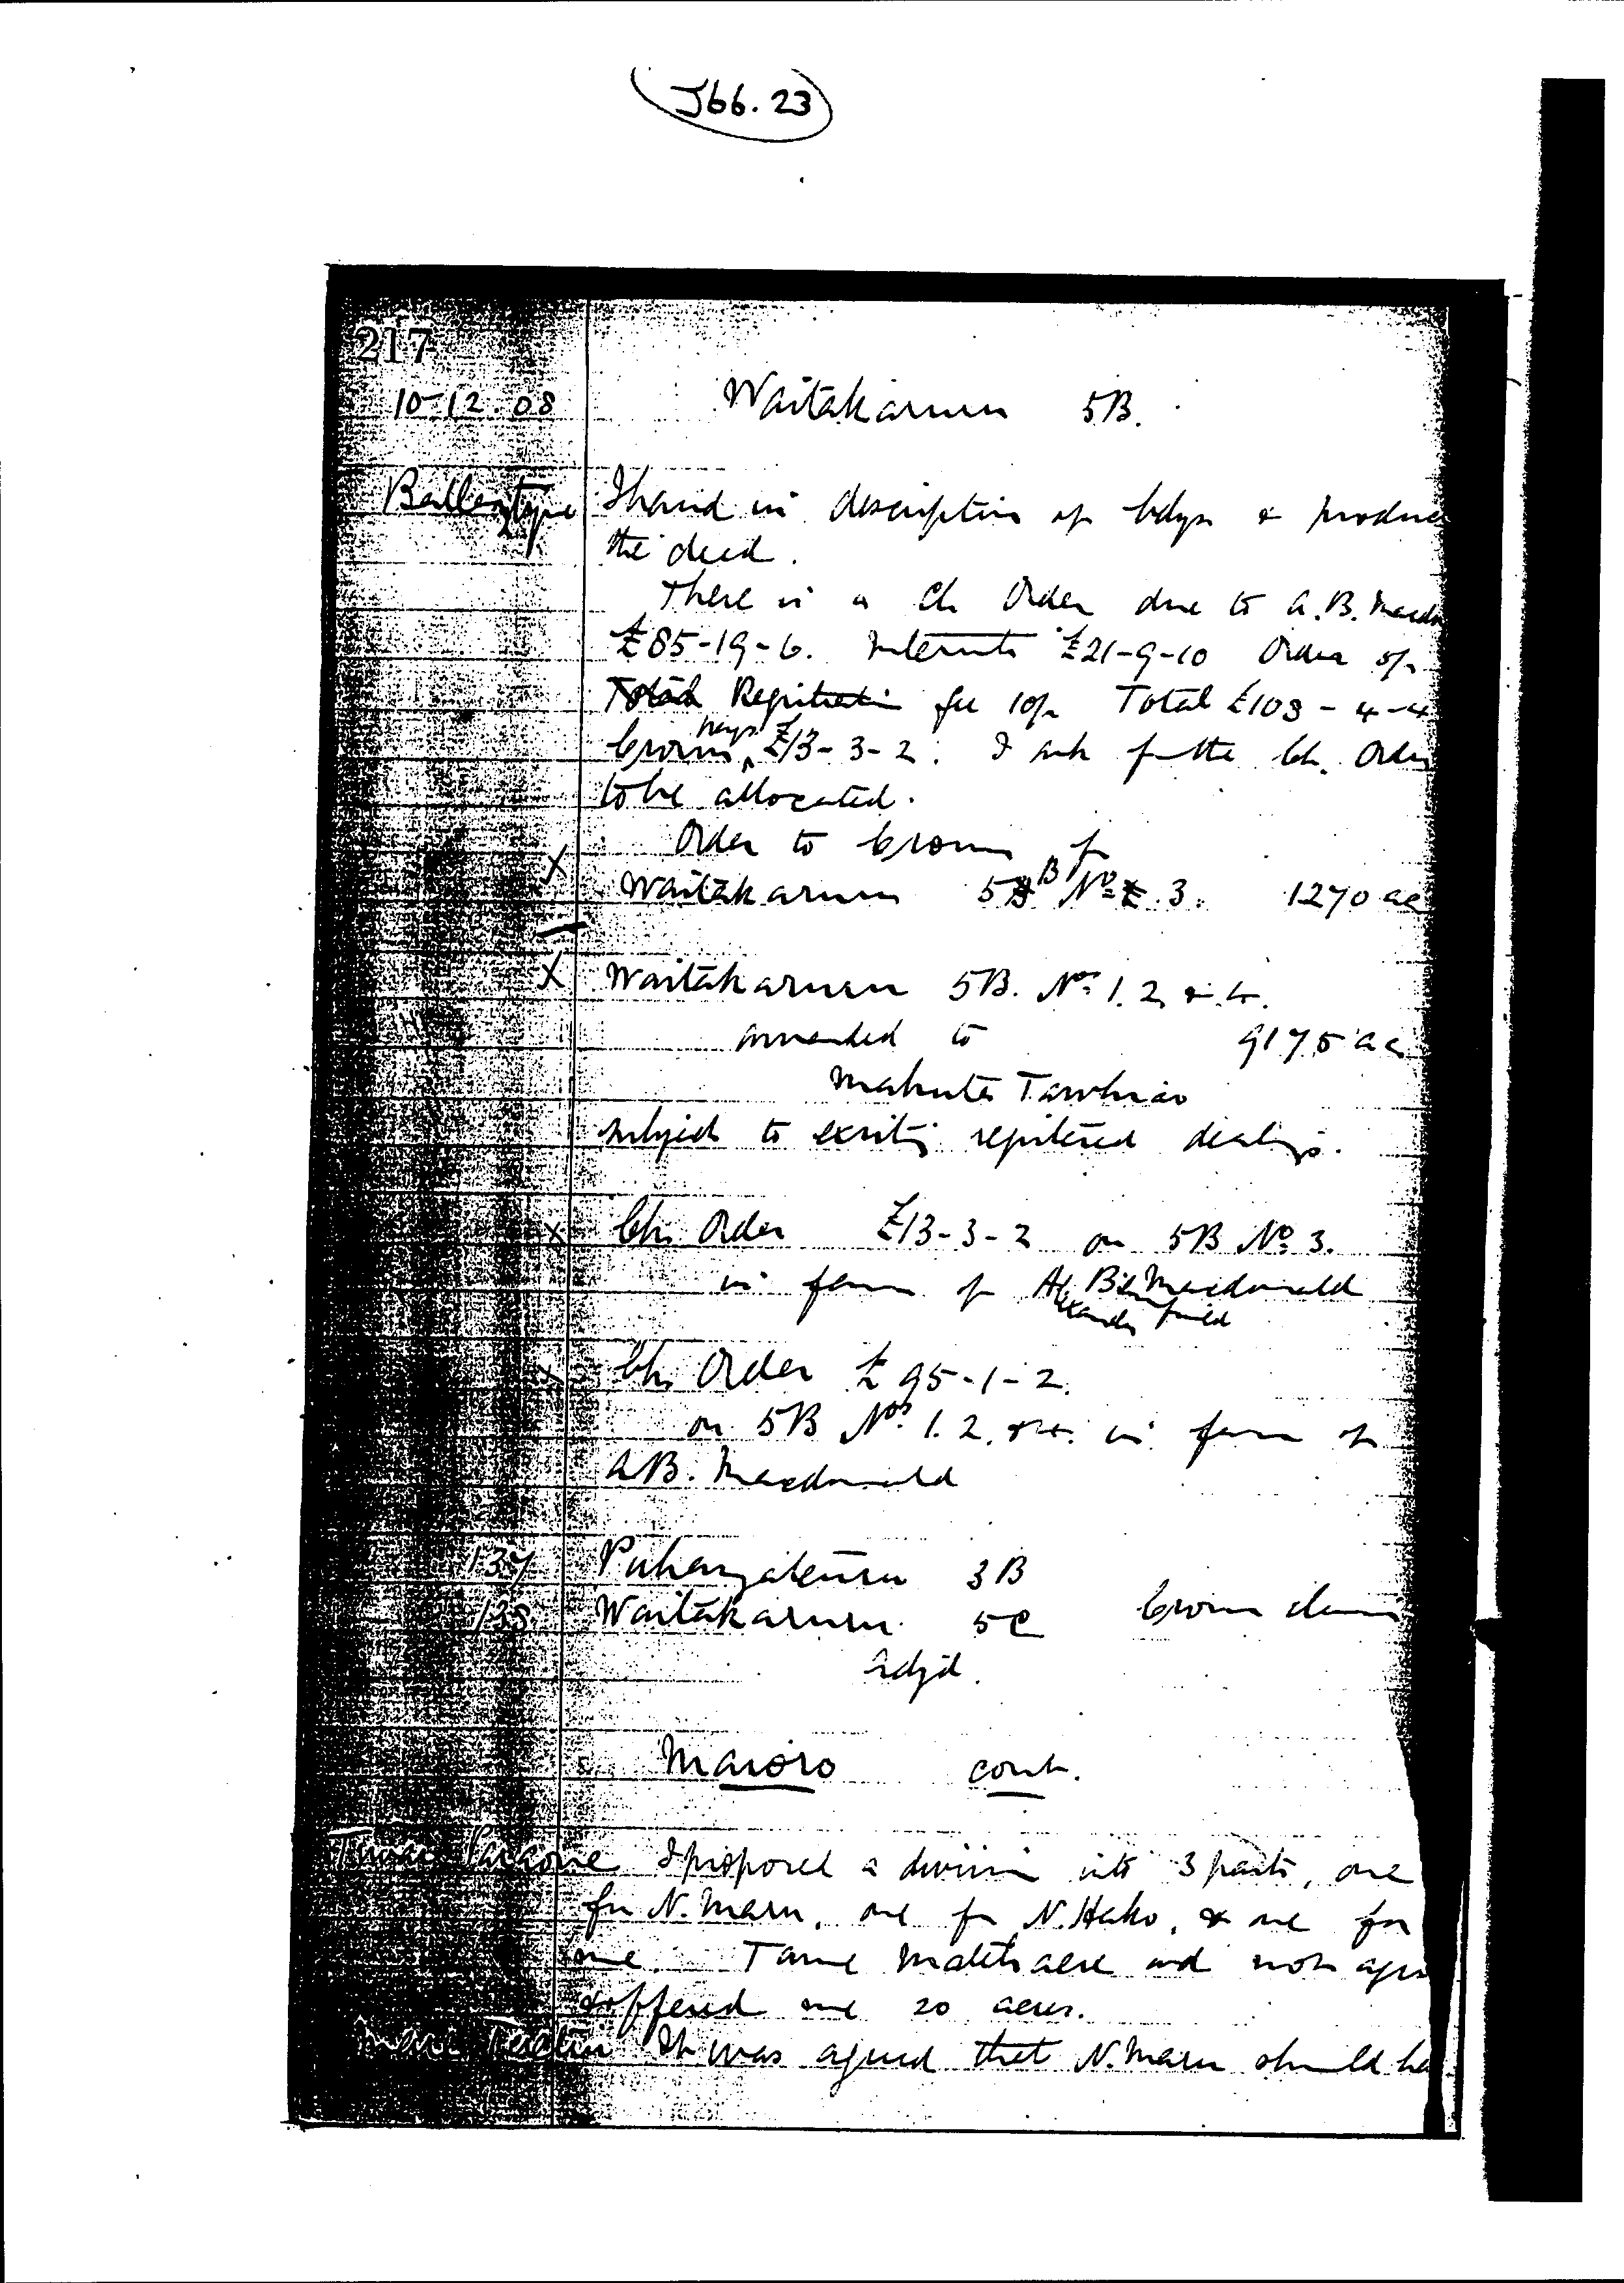 J66.23
217
10-12-08 Waitakaruru 5B.
I hand in description of bdys & produce
the deed.
There is a Ch. Order due to A.B. Macdo
£85-19-6. Interest £21-9-10 Order 5/-
Total Registration fee 10/- Total £108-4-4
Crown pays £13-3-2. I ask for the Ch. Order
to be allocated.
Order to Crown for
X Waitakaruru 5B No 3. 1270 ac
X Waitakaruru 5B. Nos 1. 2 & 4.
amended to 9175 ac
Mahuta Tawhiao
subject to existing registered dealings.
X Ch. Order £13-3-2 on 5B No 3.
in favor of Alexander Macdonald
X Ch. Order £95-1-2.
on 5B Nos 1. 2. & 4. in favor of
A B. Macdonald
137 Puhangateuru 3B
138 Waitakaruru 5C Crown claim
Adjd.
Maioro cont.
I proposed a division into 3 parts, one
for N. Maru, one for N. Hako, & one for
me. Tame did not agree
& offered me 20 acres.
It was agreed that N. Maru should ha